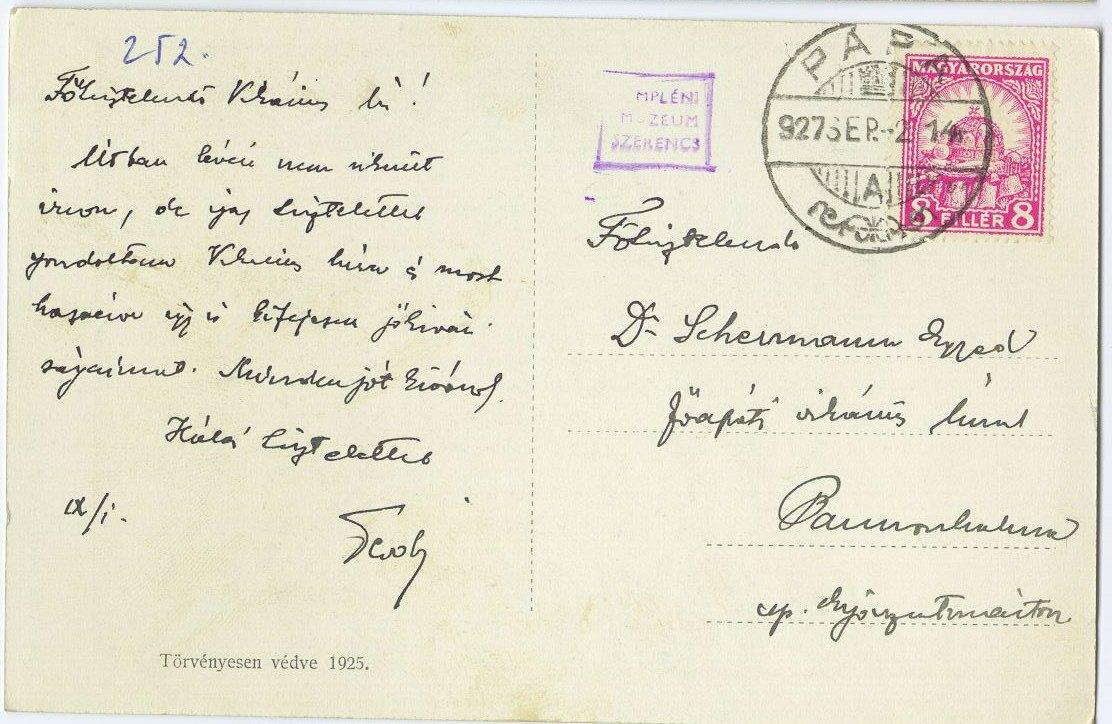 252.
Főtisztelendő Vikárius úr!
Utóban lévén nem
írnom, de igaz tisztelettel
gondoltam Vikárius úrra és most
is kifejezem jókíván-
ságaimat. Minden jót kívánok.
Hálás tisztelettel
IX/1.
Törvényesen védve 1925.
MPLÉNI
MUZEUM
SZERENCS
PÁPA
927 SEP.-2. 14
A
MAGYARORSZÁG
8 FILLÉR 8
Főtisztelendő
Dr Schermann Egyed
főapáti vikárius úrnak
Pannonhalma
up. Győrszentmárton